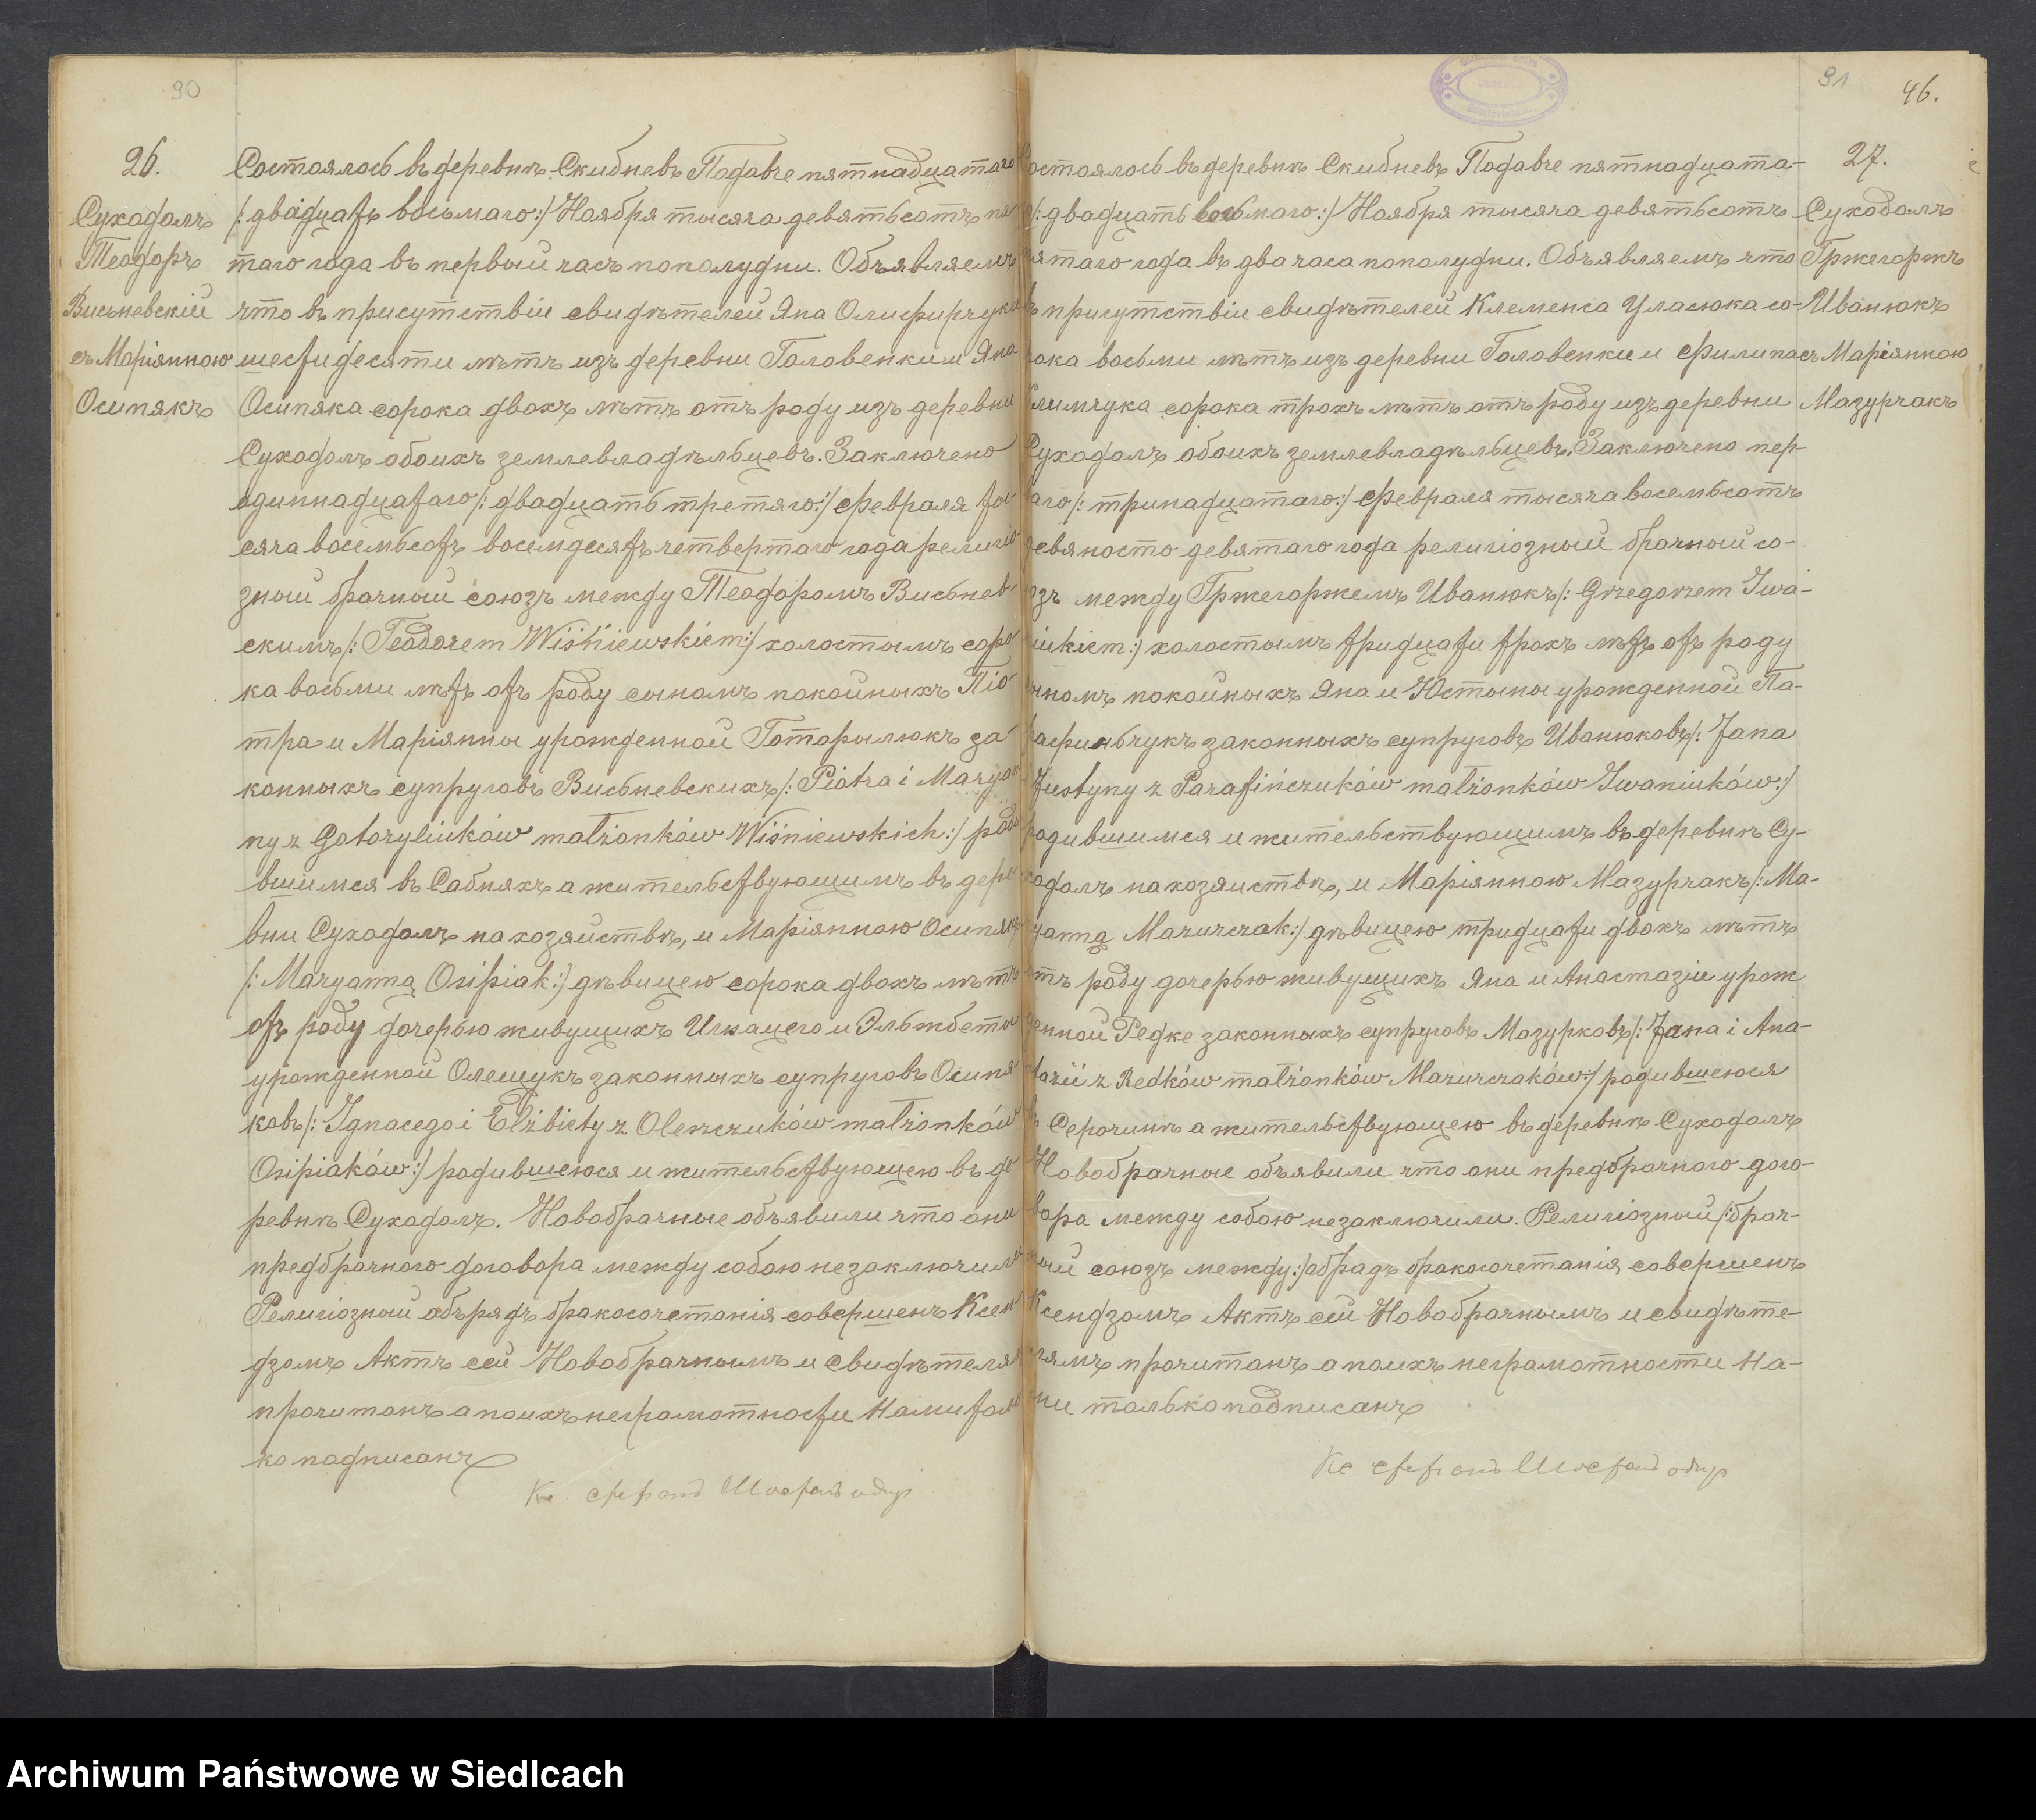 90
26.
Суходолъ
Теодоръ
Висьневскій
съ Маріянною
Осипякъ
Состоялось въ деревнѣ Скибневъ Подавче пятнадцатаго
/: двадцать восьмаго :/ Ноября тысяча девятьсотъ пя-
таго года въ первый часъ пополудни. Объявляемъ
что въ присутствіи свидѣтелей Яна Олифирчука
шестидесяти лѣтъ изъ деревни Головенки и Яна
Осипяка сорока двохъ лѣтъ отъ роду изъ деревни
Суходолъ обоихъ землевладѣльцевъ. Заключено
одиннадцатаго /: двадцать третяго :/ Февраля ты-
сяча восемьсотъ восемдесятъ четвертаго года религіо-
зный брачный союзъ между Теодоромъ Висьнев-
скимъ /: Teodorem Wiśniewskiem :/ холостымъ соро-
ка восьми лѣтъ отъ роду сыномъ покойныхъ Піо-
тра и Маріянны урожденной Готорылюкъ за-
конныхъ супруговъ Висьневскихъ /: Piotra i Maryan-
ny z Gotoryluków małżonków Wiśniewskich :/ роди-
вшимся въ Сабняхъ а жительствующимъ въ дере-
вни Суходолъ на хозяйствѣ, и Маріянною Осипякъ
/: Maryanną Osipiak :/ дѣвицею сорока двохъ лѣтъ
отъ роду дочерью живущихъ Игнацего и Эльжбеты
урожденной Олещукъ законныхъ супруговъ Осипя-
ковъ /: Ignacego i Elżbiety z Oleszczuków małżonków
Osipiaków :/ родившеюся и жительствующею въ де-
ревнѣ Суходолъ. Новобрачные объявили что они
предбрачного договора между собою незаключили
Религіозный обърядъ бракосочетанія совершенъ Ксен-
дзомъ Актъ сей Новобрачнымъ и свидѣтелямъ
прочитанъ а поихъ неграмотности Нами толь-
ко подписанъ
Кс
91
46.
27.
Суходолъ
Гржегоржъ
Иванюкъ
съ Маріянною
Мазурчакъ
Состоялось въ деревнѣ Скибневъ Подавче пятнадцата-
го /: двадцать восьмаго :/ Ноября тысяча девятьсотъ
пятаго года въ два часа пополудни. Объявляемъ что
въ присутствіи свидѣтелей Клеменса Уласюка со-
рока восьми лѣтъ изъ деревни Головенки и Филипа
Климчука сорока трохъ лѣтъ отъ роду изъ деревни
Суходолъ обоихъ землевладѣльцевъ. Заключено пер-
ваго /: тринадцатаго :/ Февраля тысяча восемьсотъ
девяносто девятаго года религіозный брачный со-
юзъ между Гржегоржемъ Иванюкъ /: Grzegorzem Iwa-
niukiem :/ холостымъ тридцати трохъ лѣтъ отъ роду
сыномъ покойныхъ Яна и Юстыны урожденной Па-
рафиньчукъ законныхъ супруговъ Иванюковъ /: Jana
Justyny z Parafińczuków małżonków Iwaniuków :/
родившимся и жительствующимъ въ деревнѣ Су-
ходолъ на хозяиствѣ, и Маріянною Мазурчакъ /: Ma-
ryanną Mazurczak :/ дѣвицею тридцати двохъ лѣтъ
отъ роду дочерью живущихъ Яна и Анастазіи урож
денной Редке законныхъ супруговъ Мазурковъ /: Jana i Ana-
stazii z Redków małżonków Mazurczaków :/ родившеюся
въ Серочинѣ а жительствующею въ деревнѣ Суходолъ
Новобрачные объявили что они предбрачного дого-
вора между собою незаключили. Религіозный /: брач-
ный союзъ между :/ обрадъ бракосочетанія совершенъ
Ксендзомъ Актъ сей Новобрачнымъ и свидѣте-
лямъ прочитанъ а поихъ неграмотности На-
ми толькоподписанъ
Кс
Archiwum Państwowe w Siedlcach